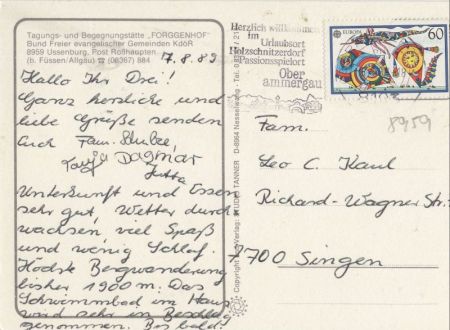 Tagungs- und Begegnungsstätte „FORGGENHOF"
Bund Freier evangelischer Gemeinden KdöR
8959 Ussenburg, Post Roßhaupten
(b. Füssen/Allgäu) ☎ (08367) 884
7.8.89
Hallo Ihr Drei!
Ganz herzliche und
liebe Grüße senden
Euch Fam. Schulze,
Tanja Dagmar
Jutta
Unterkunft und Essen
sehr gut, Wetter durch
wachsen, viel Spaß
und wenig Schlaf.
Höchste Bergwanderung
bisher 1900 m. Das
Schwimmbad im Haus
wird sehr in Beschlag
genommen. Bis bald!
Copyright und Verlag: STUDIO TANNER D-8964 Nesselwang
Herzlich willkommen
im
Urlaubsort
Holzschnitzerdorf
Passionsspielort
Ober
ammergau
EUROPA
60
8959
Fam.
Leo C. Kaul
Richard-Wagner Str.
7700 Singen